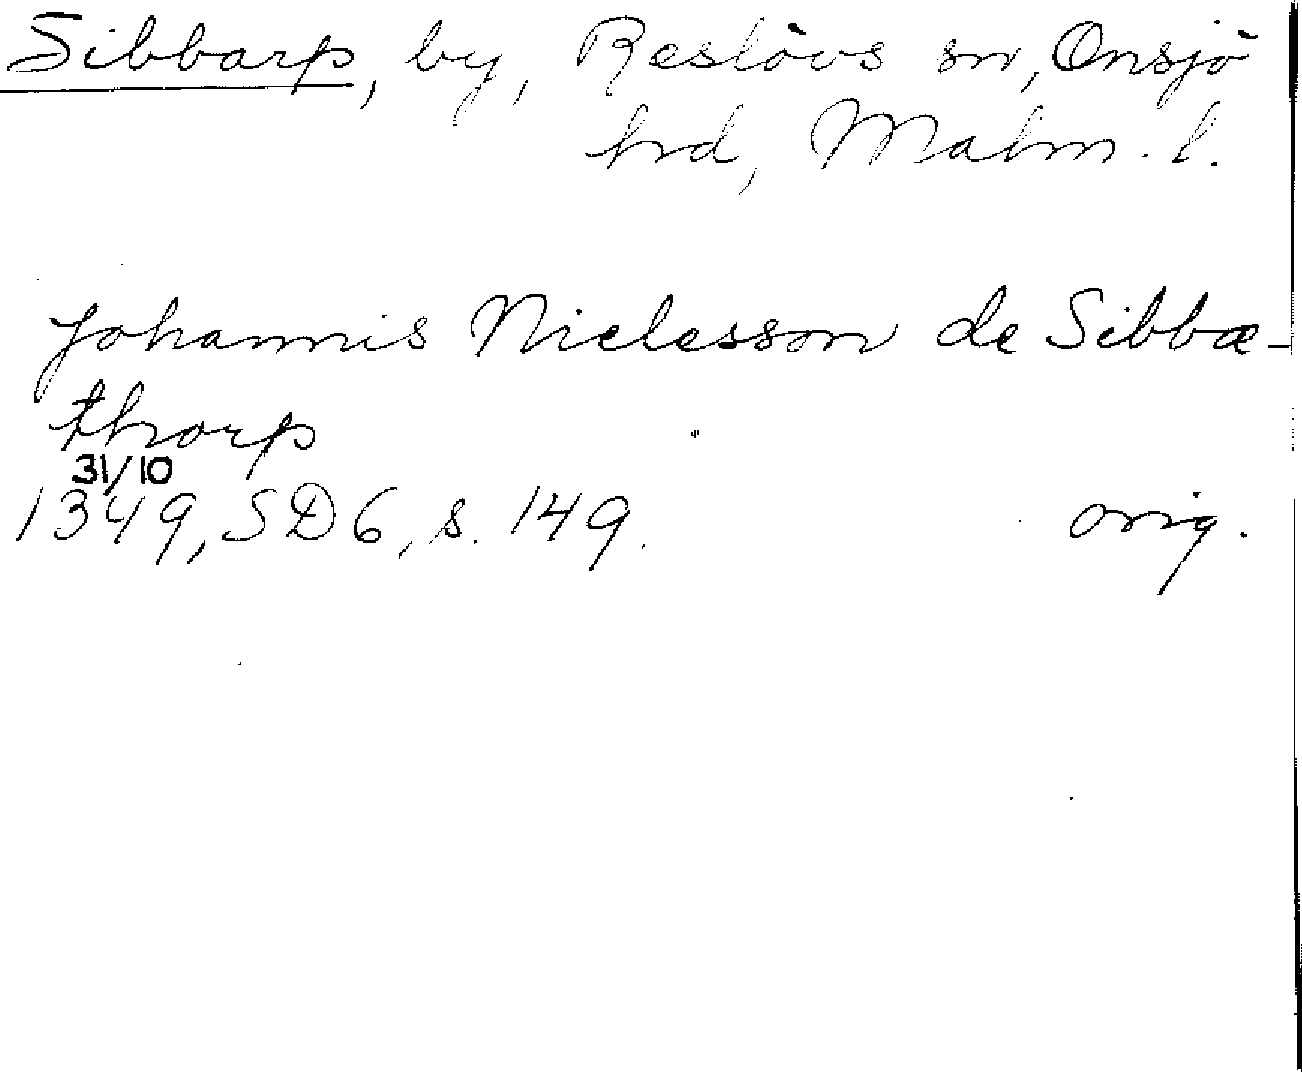 Sibbarp, by, Reslövs sn, Onsjö
hrd, Malm. l.
Johannis Nielesson de Sibbæ-
thorp
31/10
1349, SD6, s. 149. orig.